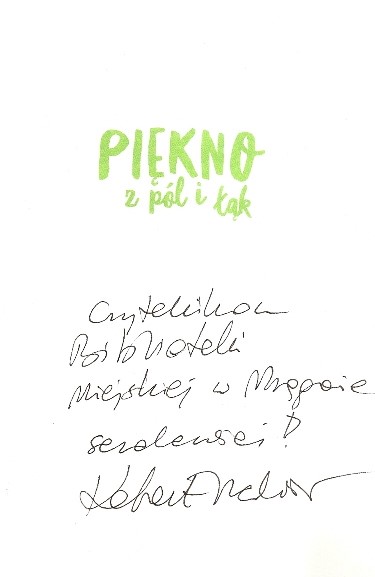 PIĘKNO
z pól i łąk
Czytelnikom
Biblioteki
Miejskiej w
serdeczniej!
Robert